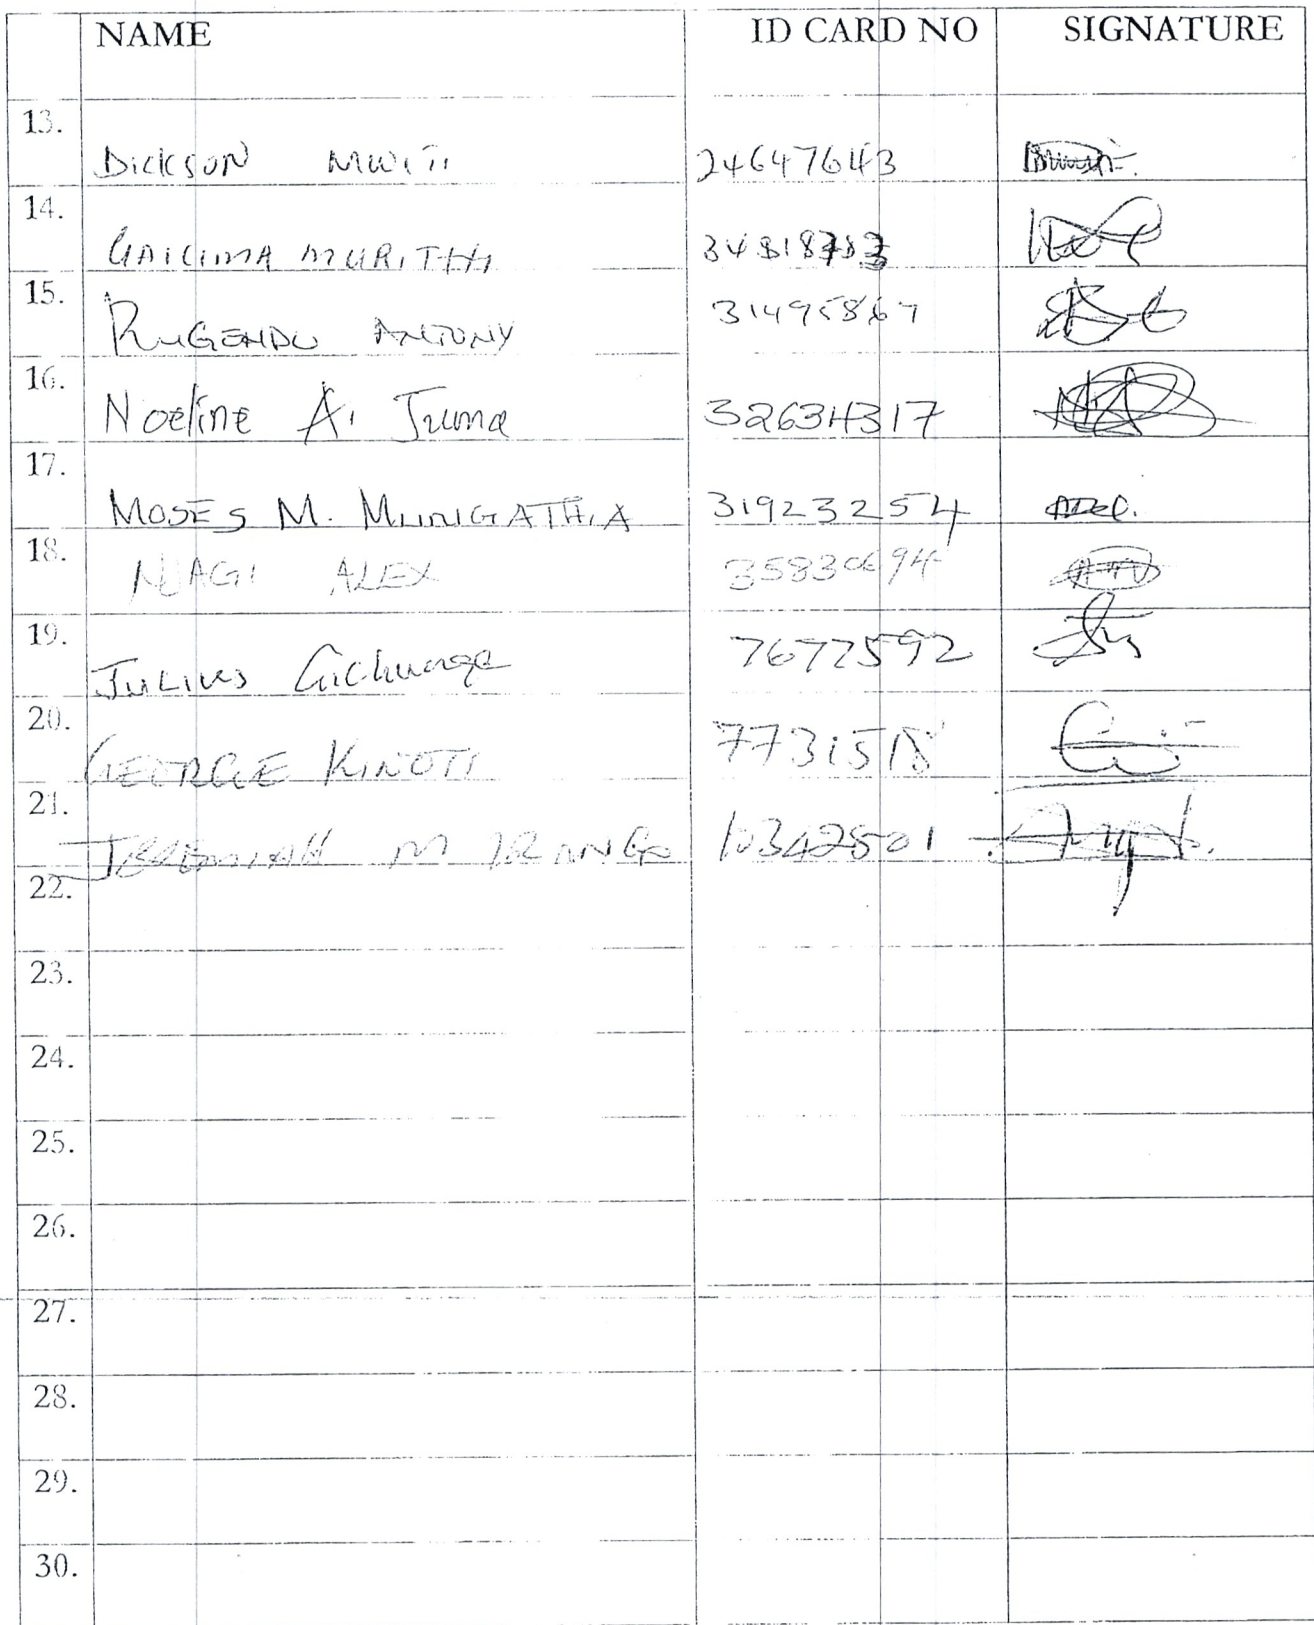 NAME ID CARD NO SIGNATURE
13. Dickson Mwiti 24647643
14. Gaicima Murithi
15. Rugendo Antony 31495867
16. Noeline A. Juma 32634317
17. Moses M. Mungathia 31923254
18. Njagi Alex 35830694
19. Julius Gichunge 7677592
20. George Kinoti 7731518
21. Jeremiah M
22.
23.
24.
25.
26.
27.
28.
29.
30.